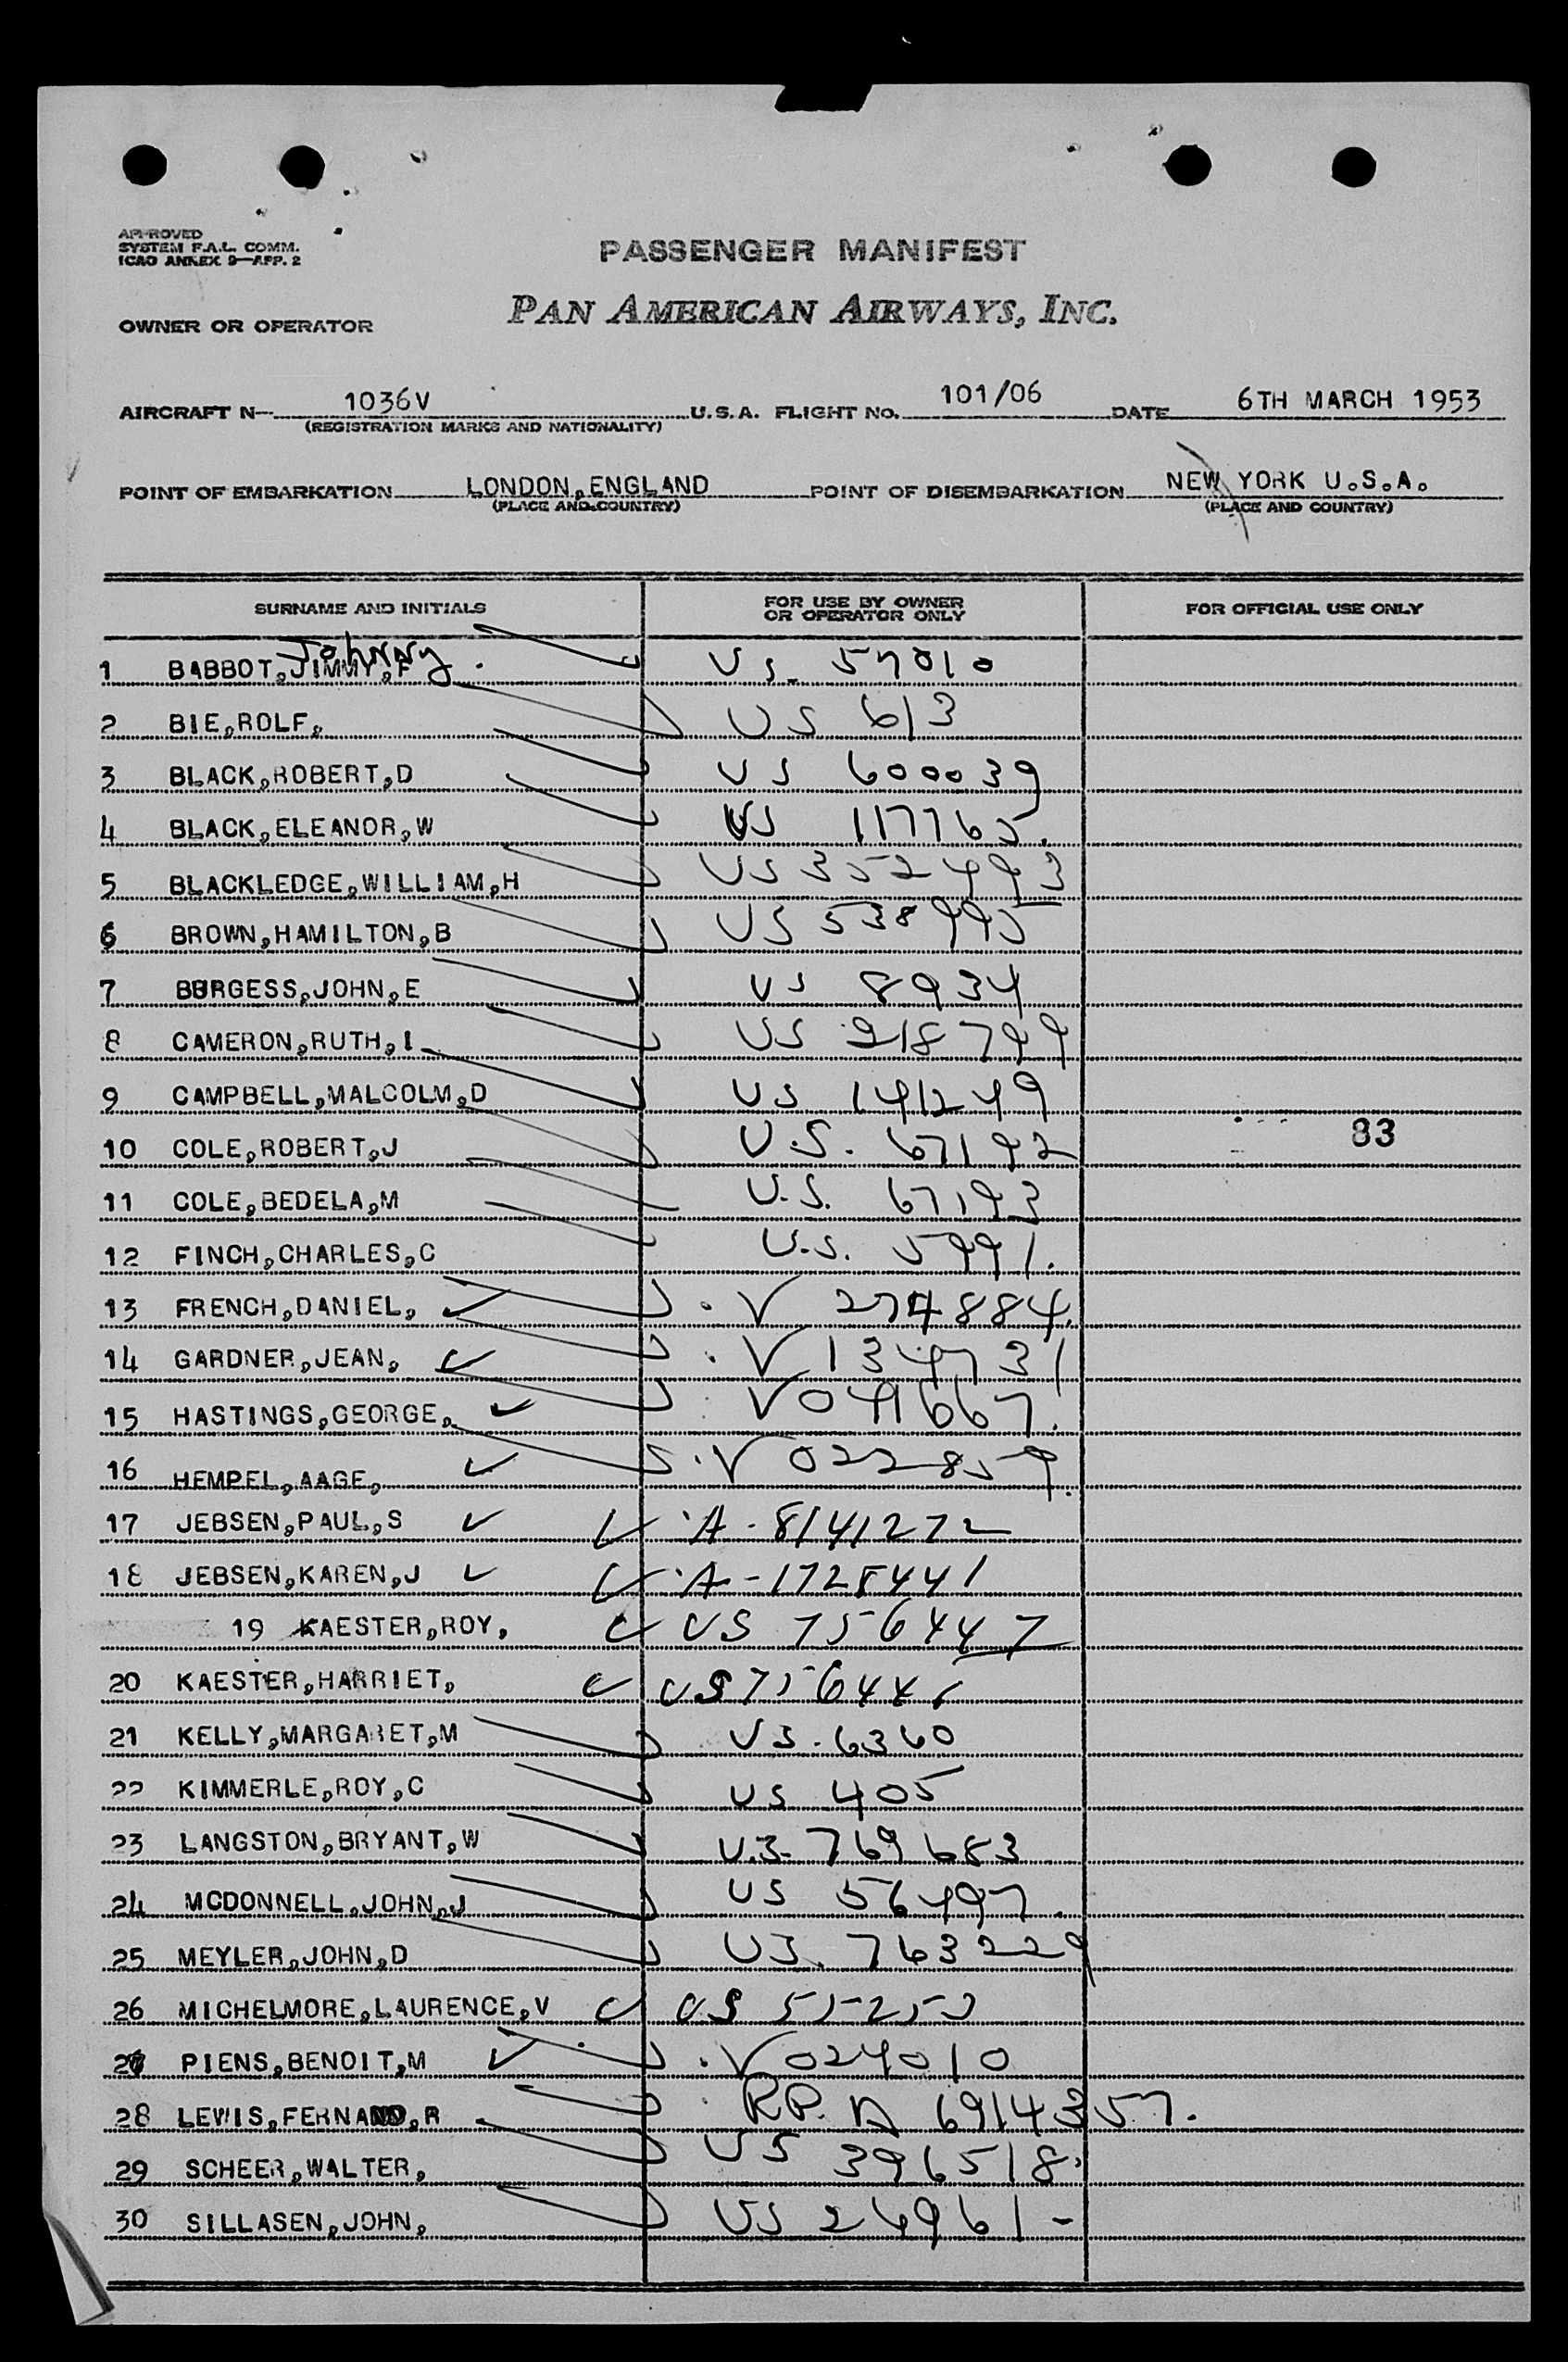 APPROVED
SYSTEM F.A.L. COMM.
ICAO ANNEX 9—APP. 2
PASSENGER MANIFEST
OWNER OR OPERATOR PAN AMERICAN AIRWAYS, INC.
AIRCRAFT N— 1036V U.S.A. FLIGHT NO. 101/06 DATE 6TH MARCH 1953
(REGISTRATION MARKS AND NATIONALITY)
POINT OF EMBARKATION LONDON,ENGLAND POINT OF DISEMBARKATION NEW YORK U.S.A.
(PLACE AND COUNTRY) (PLACE AND COUNTRY)
SURNAME AND INITIALS FOR USE BY OWNER OR OPERATOR ONLY FOR OFFICIAL USE ONLY
Johnny
1 BABBOT,JIMMY,F. US. 57010
2 BIE,ROLF, US 613
3 BLACK,ROBERT,D US 600039
4 BLACK,ELEANOR,W US 117765.
5 BLACKLEDGE,WILLIAM,H US 352493
6 BROWN,HAMILTON,B US 538995
7 BURGESS,JOHN,E US 8934
8 CAMERON,RUTH,I US 218799
9 CAMPBELL,MALCOLM,D US 141249
10 COLE,ROBERT,J U.S. 67192 83
11 COLE,BEDELA,M U.S. 67193
12 FINCH,CHARLES,C U.S. 5991.
13 FRENCH,DANIEL, V 274884.
14 GARDNER,JEAN, V 134731
15 HASTINGS,GEORGE, V 041667.
16 HEMPEL,AAGE, V 022859.
17 JEBSEN,PAUL,S A-8141272
18 JEBSEN,KAREN,J A-1728441
19 KAESTER,ROY, US 756447
20 KAESTER,HARRIET, US
21 KELLY,MARGARET,M US. 6360
22 KIMMERLE,ROY,C US 405
23 LANGSTON,BRYANT,W U.S. 769683
24 MCDONNELL,JOHN,J US 56497.
25 MEYLER,JOHN,D US. 763229
26 MICHELMORE,LAURENCE,V US
27 PIENS,BENOIT,M V 024010
28 LEWIS,FERNAND,R RP. A 6914357.
29 SCHEER,WALTER, US 396518.
30 SILLASEN,JOHN, US 26961-